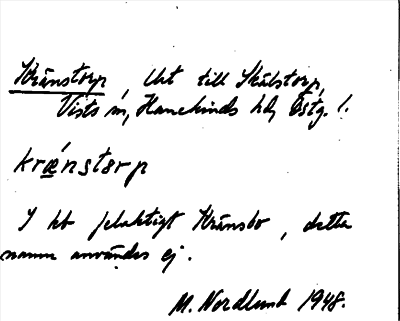 Kränstorp, Lht till Skälstorp,
Vists sn, Hanekinds hd, Östg. l.
krǽnstɔrp
I kb felaktigt Kränsbo, detta
namn användes ej.
M. Nordlund 1948.